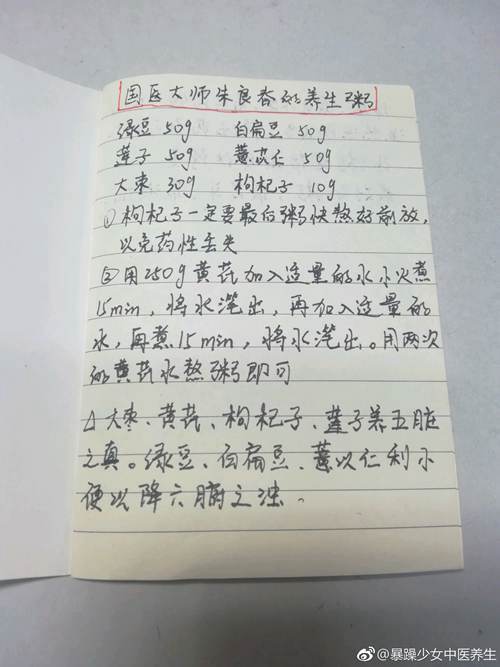 国医大师朱良春的养生粥
绿豆 50g 白扁豆 50g
莲子 50g 薏苡仁 50g
大枣 30g 枸杞子 10g
①枸杞子一定要最后粥快熬好前放,
以免药性丢失
②用250g黄芪加入适量的水小火煮
15min,将水滗出,再加入适量的
水,再煮15min,将水滗出。用两次
的黄芪水熬粥即可
△大枣、黄芪、枸杞子、莲子养五脏
之真。绿豆、白扁豆、薏以仁利小
便以降六腑之浊、
@暴躁少女中医养生